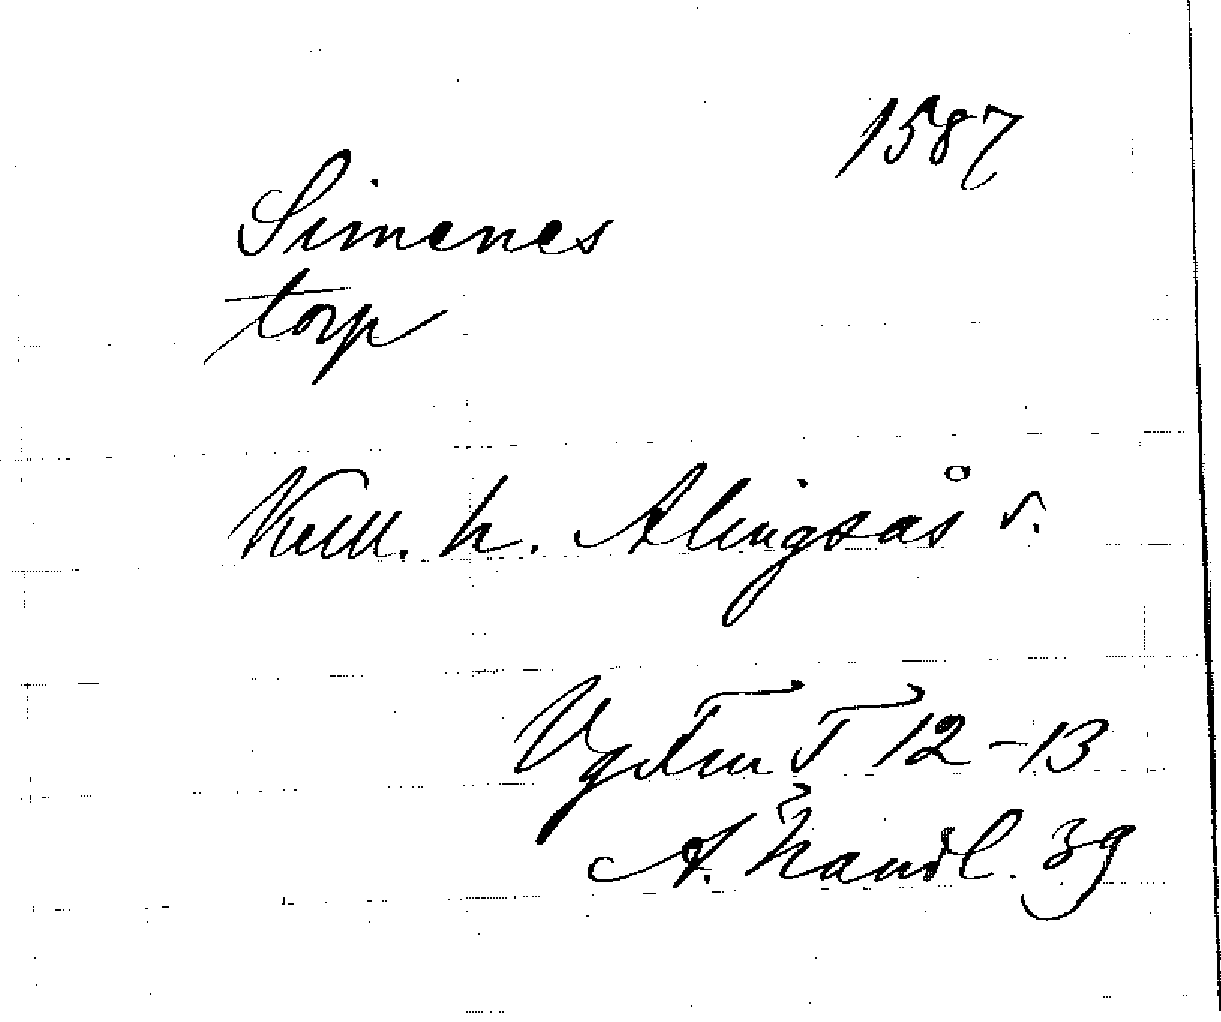 1587
Simenes
torp
Kull. h. Alingsås s.
Vg Tm T 12-13
A. handl. 39